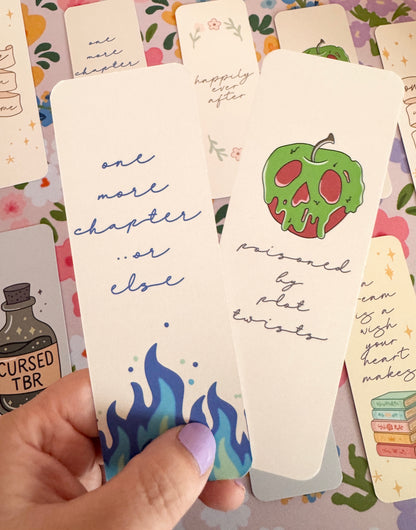 one
more
chapter
happily
ever
after
one
more
chapter
..or
else
poisoned
by
plot
twists
CURSED
TBR
is a
wish
your
heart
makes